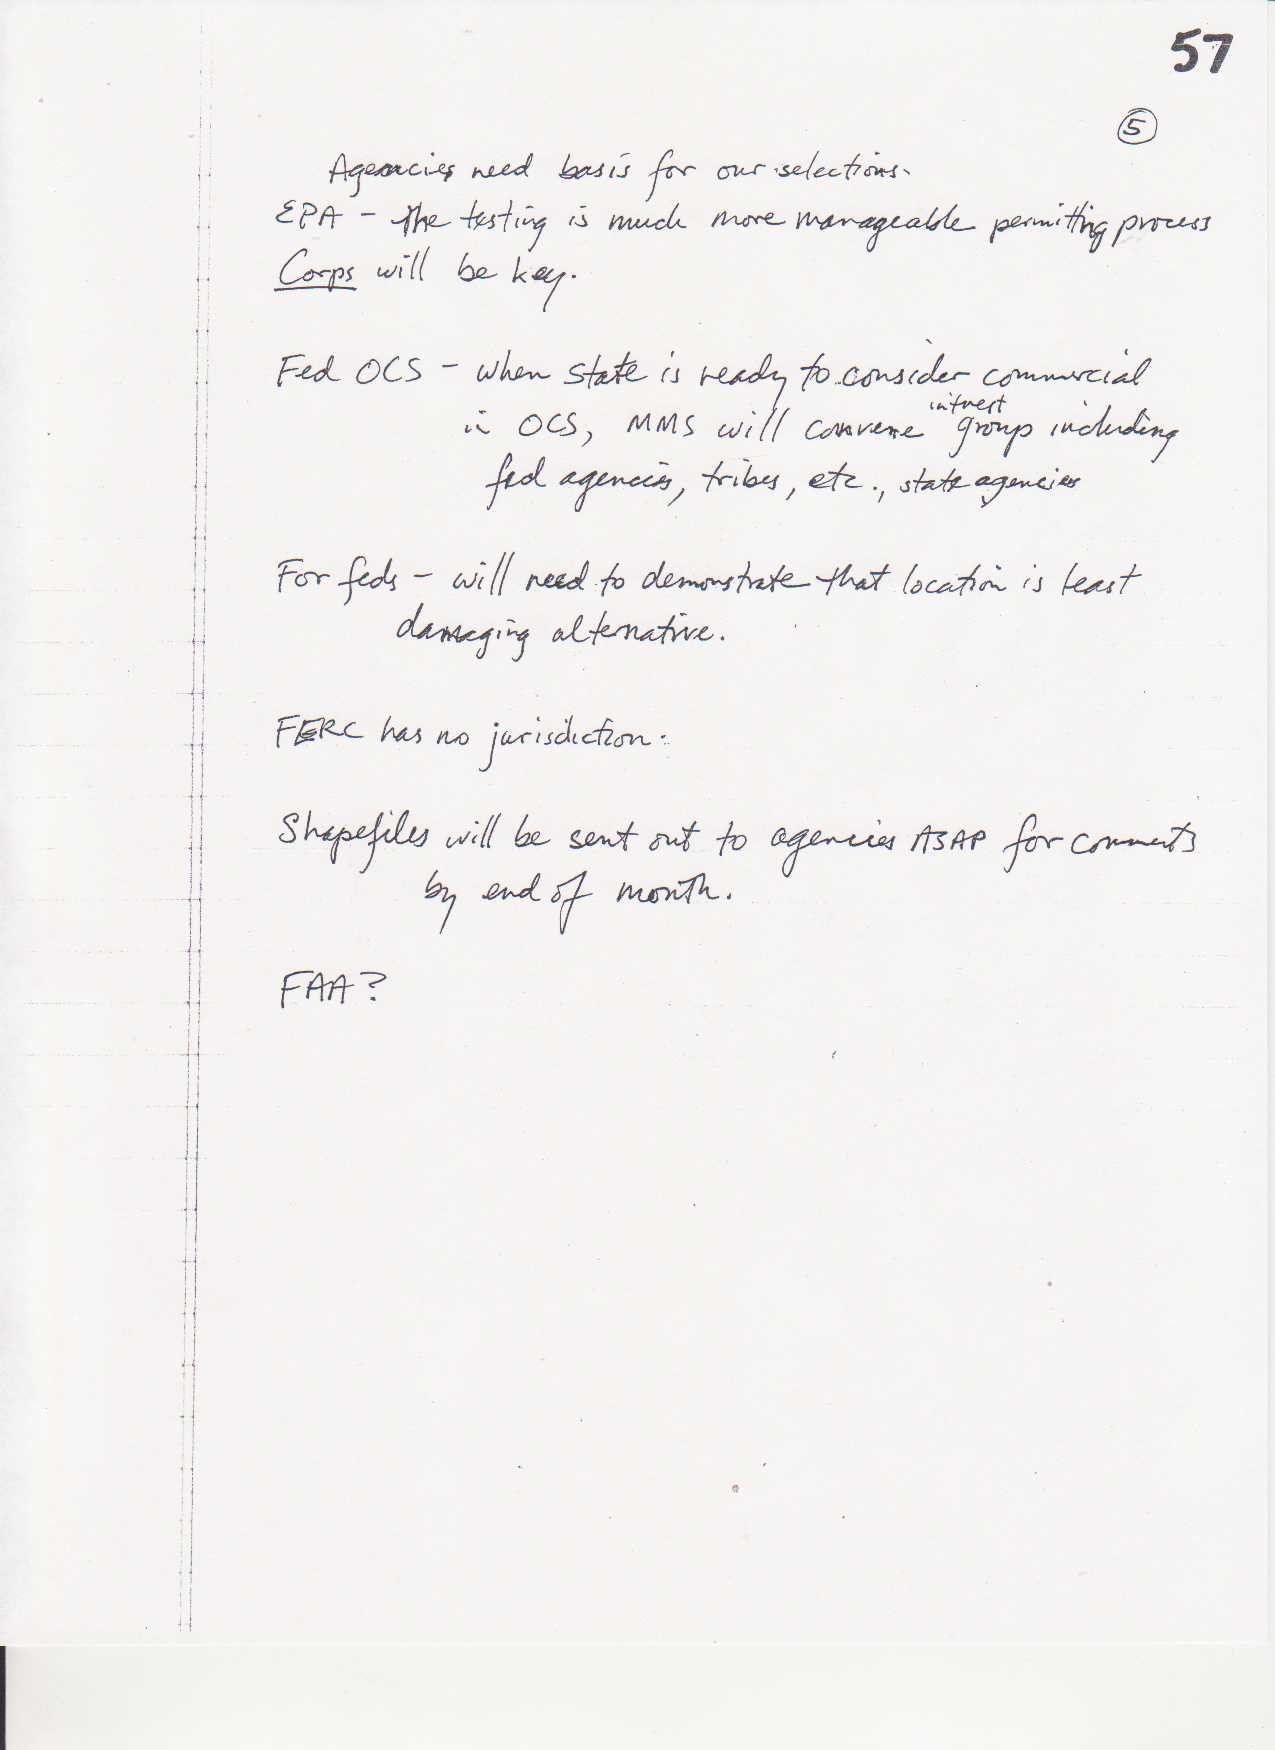 57
5
Agencies need basis for our selections.
EPA - the testing is much more manageable permitting process
Corps will be key.
Fed OCS - when state is ready to consider commercial
in OCS, MMS will convene intrest group including
fed agencies, tribes, etc., state agencies
For feds - will need to demonstrate that location is least
damaging alternative.
FERC has no jurisdiction.
Shapefiles will be sent out to agencies ASAP for comments
by end of month.
FAA?